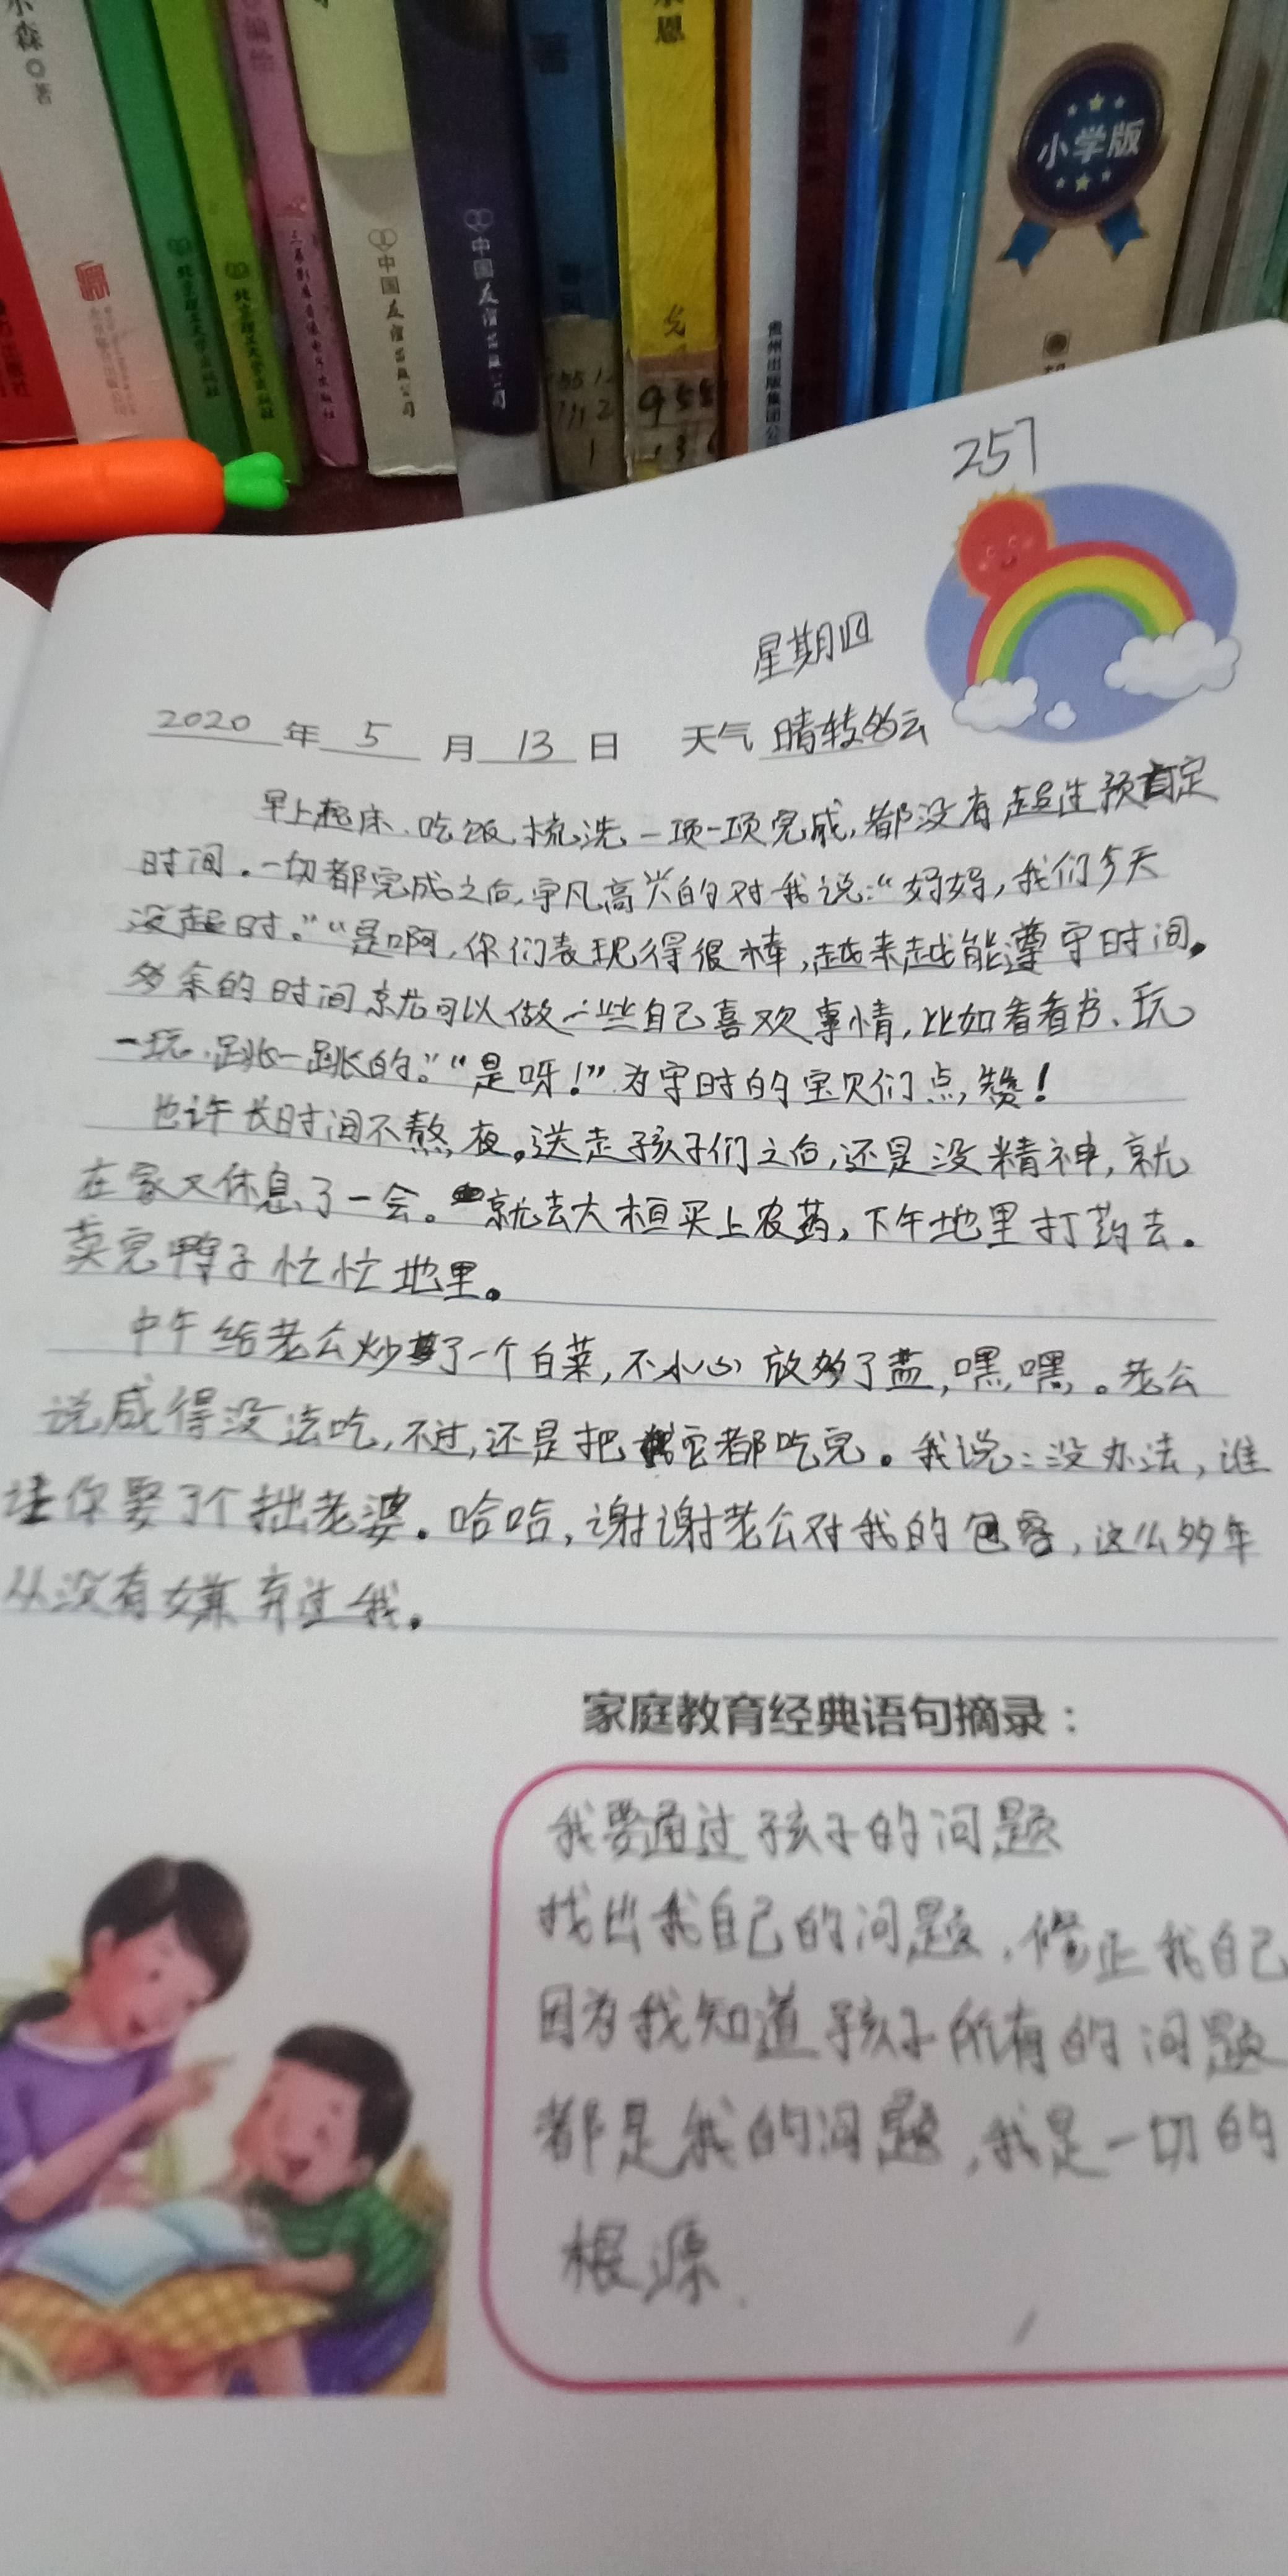 小森◎著
编绘
中国友谊出版公司
中国友谊出版公司
光
955
贵州出版集团公
小学版
257
星期四
2020年5月13日 天气 晴转多云
早上起床、吃饭、梳洗一项一项完成,都没有超过预定
时间。一切都完成之后,宇凡高兴的对我说:“妈妈,我们今天
没超时。”“是啊,你们表现得很棒,越来越能遵守时间。
多余的时间就可以做一些自己喜欢事情,比如看看书、玩
一玩、跳一跳的。”“是呀!”为守时的宝贝们点赞!
也许长时间不熬夜。送走孩子们之后,还是没精神,就
在家又休息了一会。就去大桓买上农药,下午地里打药去。
卖完鸭子忙忙地里。
中午给老公炒了一个白菜,不小心放多了盐,嘿嘿。老公
说咸得没法吃,不过,还是把它都吃完。我说:没办法,谁
让你娶了个拙老婆。哈哈,谢谢老公对我的包容,这么多年
从没有嫌弃过我。
家庭教育经典语句摘录:
我要通过孩子的问题
找出我自己的问题,修正我自己
因为我知道孩子所有的问题
都是我的问题,我是一切的
根源.